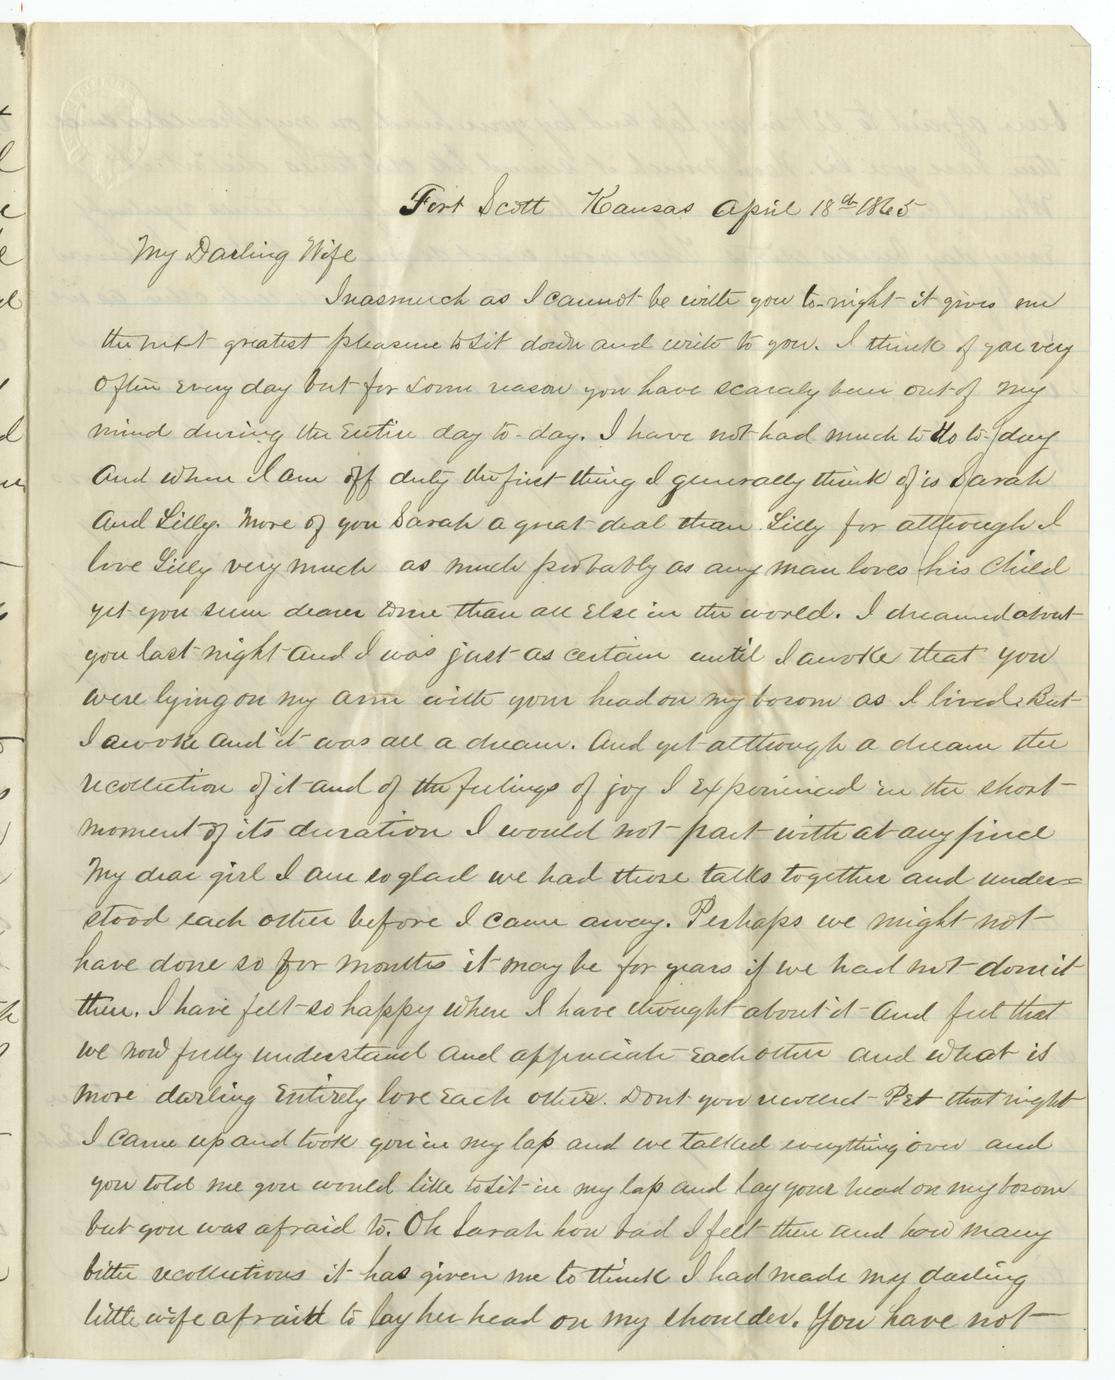 Fort Scott Kansas April 18th 1865
My Darling Wife
Inasmuch as I cannot be with you to-night it gives me
the next greatest pleasure to sit down and write to you. I think of you very
often every day but for some reason you have scarcely been out of my
mind during the entire day to-day. I have not had much to do to-day
and when I am off duty the first thing I generally think of is Sarah
And Lilly. More of you Sarah a great deal than Lilly for although I
love Lilly very much as much probably as any man loves his child
yet you seem dearer to me than all else in the world. I dreamed about
you last night and I was just as certain until I awoke that you
were lying on my arm with your head on my bosom as I lived. But
I awoke and it was all a dream. And yet although a dream the
recollection of it and of the feelings of joy I experienced in the short
moment of its duration I would not part with at any price
My dear girl I am so glad we had those talks together and under=
stood each other before I came away. Perhaps we might not
have done so for months it may be for years if we had not done it
then. I have felt so happy when I have thought about it and feel that
we now fully understand and appreciate each other and what is
more darling Entirely love each other. Dont you recollect Pet that night
I came up and took you in my lap and we talked everything over and
you told me you would like to sit in my lap and lay your head on my bosom
but you was afraid to. Oh Sarah how bad I felt then and how many
bitter recollections it has given me to think I had made my darling
little wife afraid to lay her head on my shoulder. You have not